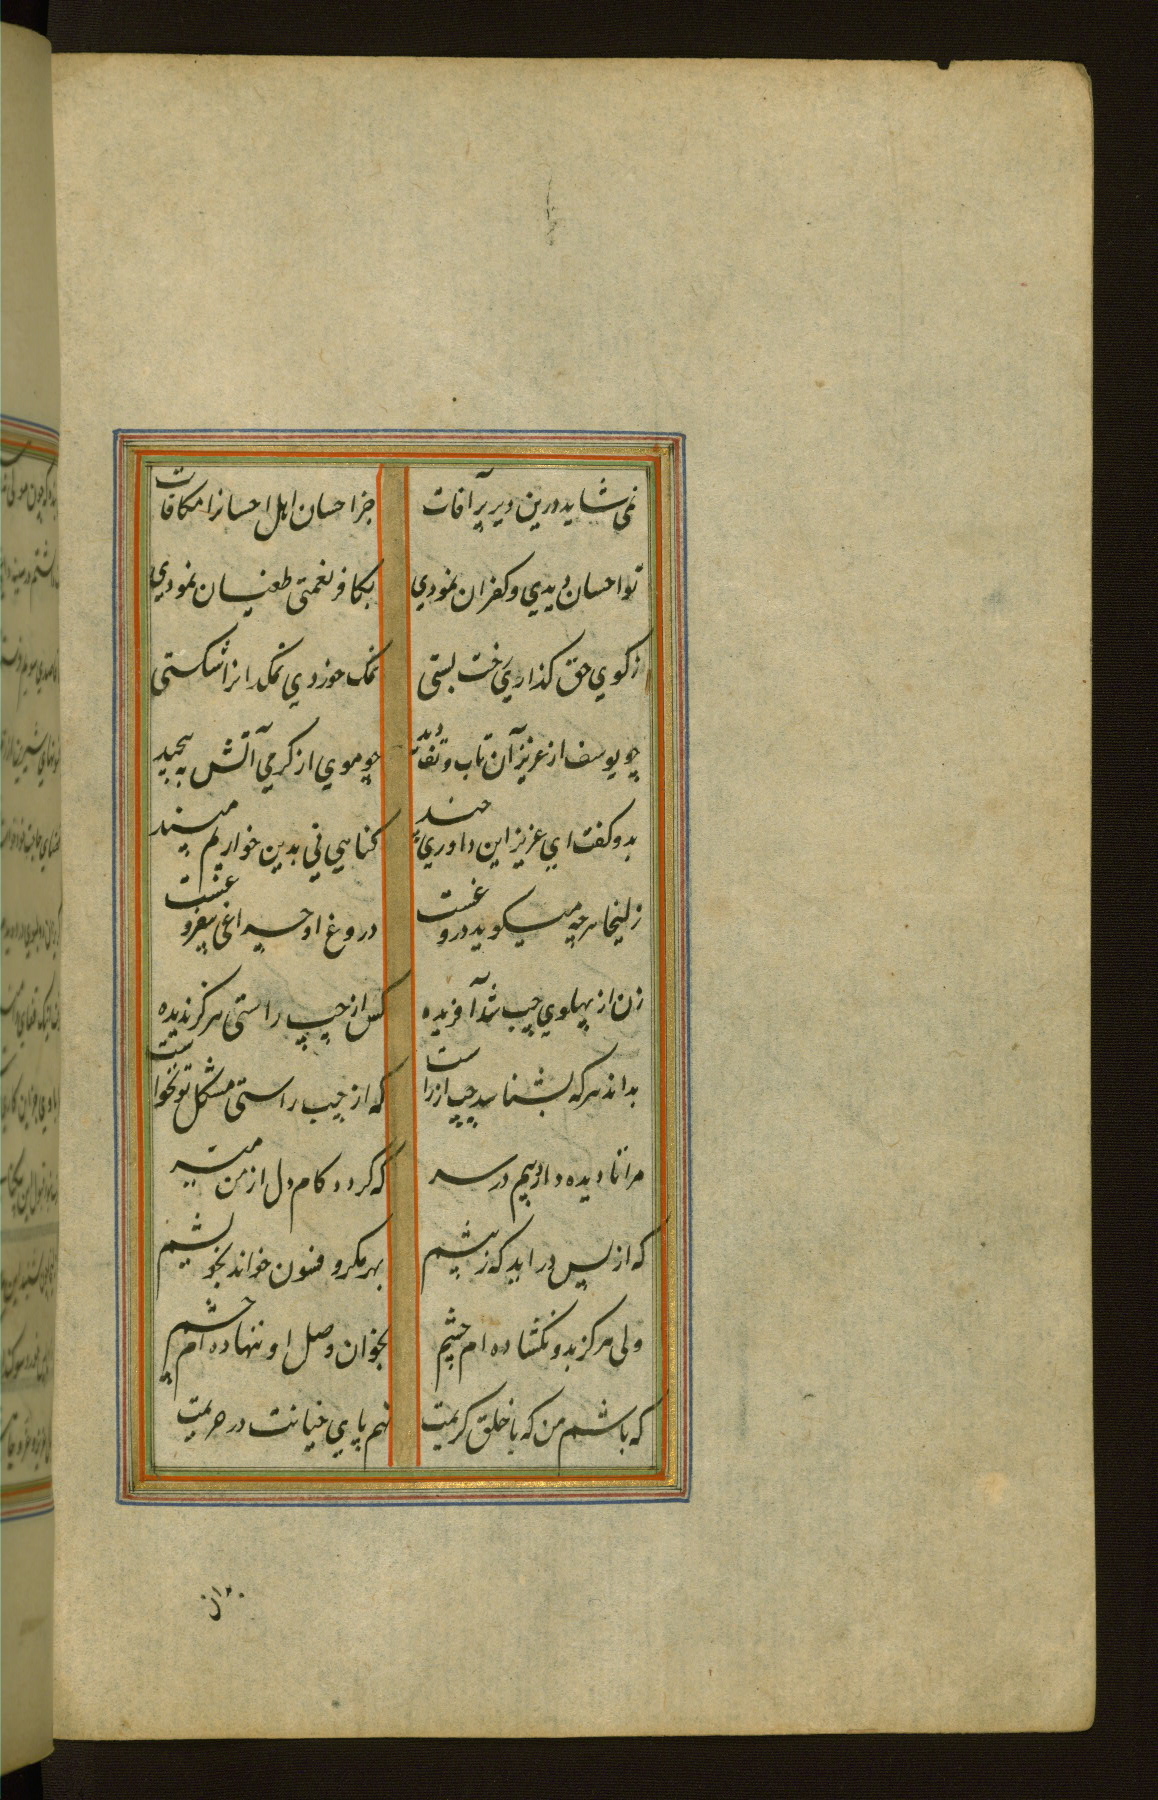 نمی شاید درین دیر پر آفات جز احسان اهل احسانرا مکافات
تو احسان دیدی و کفران نمودی بکافر نعمتی طغیان نمودی
ز کوی حق گذاری رخت بستی نمک خوردی نمکدانرا شکستی
چو یوسف از عزیز آن تاب و تف دید چو موی از گرمی آتش بپیچید
بدو گفت ای عزیز این داوری چند گناهی نی بدین خواریم مپسند
زلیخا هر چه میگوید دروغست دروغ او چراغ بیفروغست
زن از پهلوی چپ شد آفریده کس از چپ راستی هرگز ندیده
بداند هر که بشناسد چپ از راست که از چپ راستی مشکل توان خواست
مرا تا دیده دارد پیم در سر که گردد کام دل از من میسر
که از پس در آید که ز پیشم بهر مکر و فسون خواند بخویشم
ولی هرگز بدو نگشاده ام چشم بخوان وصل او ننهاده ام چشم
که باشم من که با خلق کریمت نهم پای خیانت در حریمت